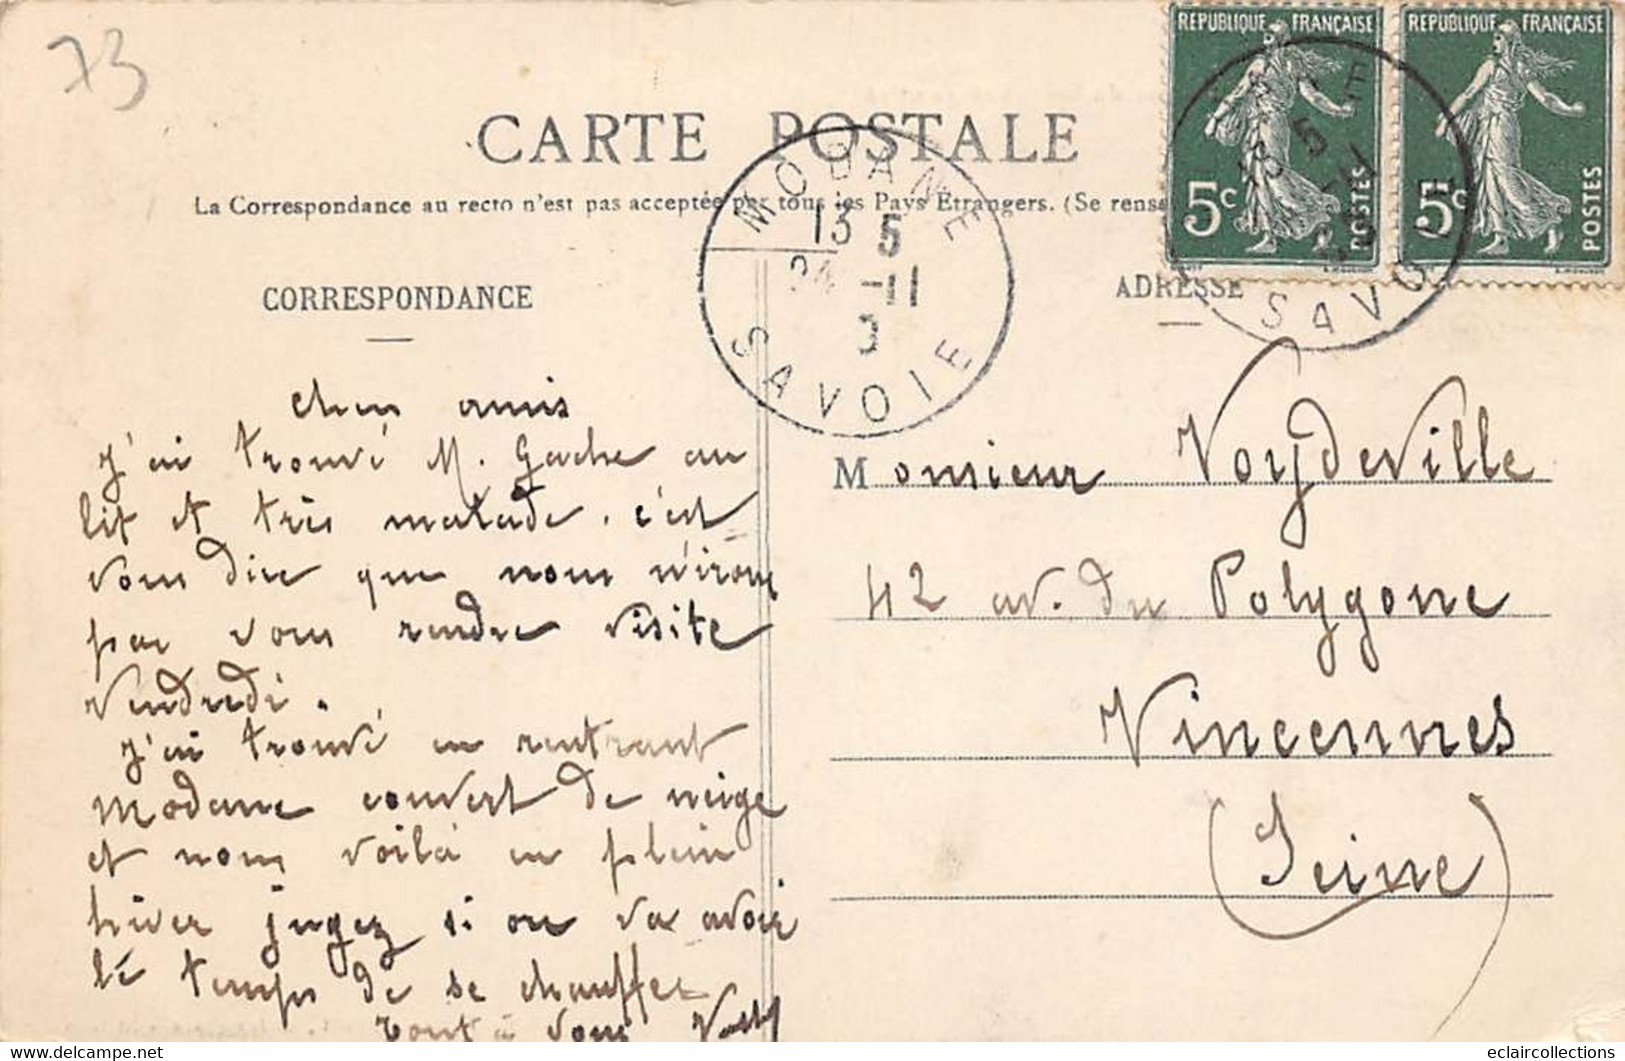 73
REPUBLIQUE FRANÇAISE
5c
POSTES
REPUBLIQUE FRANÇAISE
5c
POSTES
CARTE POSTALE
La Correspondance au recto n'est pas acceptée par tous les Pays Etrangers. (Se rens
MODANE
13 5
24 -11
SAVOIE
SAVO
CORRESPONDANCE
ADRESSE
Chers amis
J'ai trouvé M. Gache au
lit et très malade. c'est
vous dire que nous n'irons
pas vous rendre visite
Vendredi.
J'ai trouvé en rentrant
Modane couvert de neige
et nous voilà en plein
hiver jugez si on va avoir
le temps de se chauffer
Tout à vous
Monsieur Voydeville
42 av. du Polygone
Vincennes
(Seine)
eclaircollections.com